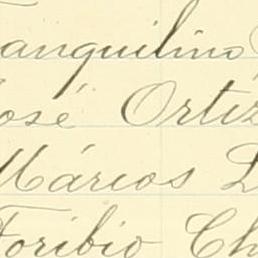 Tranquilino
José Ortiz
Márcos
Toribio Ch